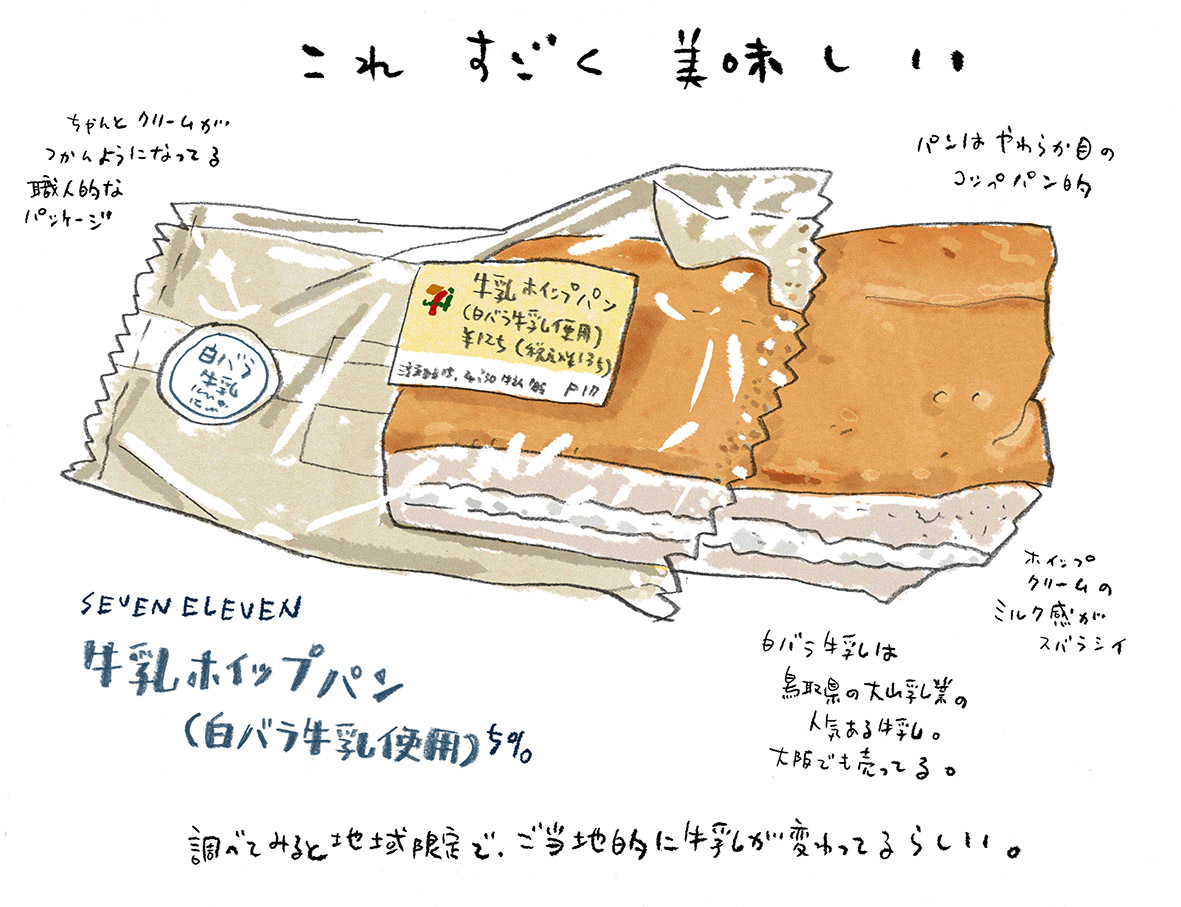 これ すごく 美味しい
ちゃんと クリームが
つかんようになってる
職人的な
パッケージ
パンは やわらか目の
コッペパン的
牛乳 ホイップパン
(白バラ牛乳使用)
¥125 (税込¥135)
白バラ
牛乳
SEVEN ELEVEN
牛乳ホイップパン
(白バラ牛乳使用)5%
ホイップ
クリームの
ミルク感が
スバラシイ
白バラ牛乳は
鳥取県の大山乳業の
人気ある牛乳。
大阪でも売ってる。
調べてみると地域限定で、ご当地的に牛乳が変わってるらしい。